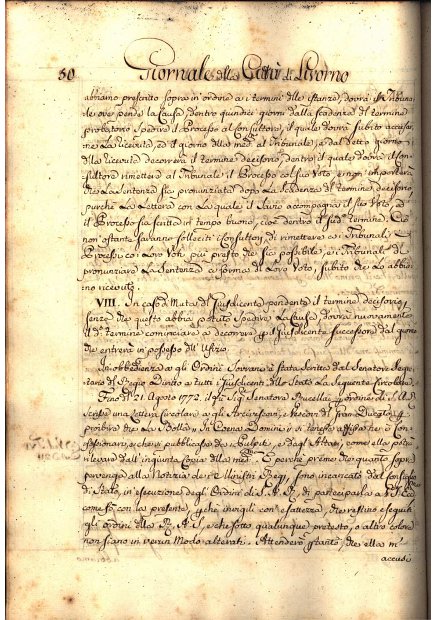 50 Giornale della Città di Livorno
abbiamo prescritto sopra in ordine a i termini delle istanze, dovrà il Tribuna,
le ove pende la Causa, dentro quindici giorni dalla scadenza del termine
probatorio spedire il Processo al Consultore, il quale dovrà subito accusar,
ne la ricevuta, ed il giorno della med.ma al Tribunale, e dal detto giorno
della ricevuta decorrerà il termine decisorio, dentro il quale dovrà il Con,
sultore rimettere al Tribunale il Processo col suo Voto, e non importerà
che la Sentenza sia pronunziata dopo la scadenza del termine decisorio,
purchè la Lettera con la quale il Savio accompagna il suo Voto, ed
il Processo sia scritta in tempo buono, cioè dentro il sud.o termine. Ciò
non ostante saranno solleciti i Consultori di rimettere a i Tribunali i
Processi co i loro Voti più presto che sia possibile, e i Tribunali di
pronunziare la Sentenza a forma di loro Voto, subito che lo abbia,
no ricevuto.
VIII. In caso di Mutaz. di Giusdicente pendente il termine decisorio,
senza che questo abbia potuto spedire la Causa, dovrà nuovamente
il d.o termine cominciare a decorrere p il Giusdicente successore dal giorno
che entrerà in possesso dell'Ufizio.
In obbedienza a gli Ordini Sovrani è stata scritta dal Senatore Segre,
tario del Regio Diritto a tutti i Giusdicenti dello Stato la seguente Circolare.
Fino del 21. Agosto 1772. il già Sig.r Senatore Rucellai p ordine di S. A. R.
scrisse una Lettera Circolare a gli Arcivescovi, e Vescovi del Gran Ducato p
proibire che la Bolla In Coena Domini si tenesse affissa ne i Con,
fessionari, e che si pubblicasse da i Pulpiti, e dagli Altari, come ella potrà
rilevare dall'inquinta Copia della med.ma E perchè preme che quanto sopra
pervenga alla notizia de i Ministri Regi, sono incaricato dal Consiglio
di Stato, in esecuzione degli Ordini di S. A. R. di parteciparla a
come fo con la presente, p che invigili con esattezza, che restino eseguiti
gli ordini della R. A. S., e che sotto qualunque pretesto, o altro colore
non siano in verun modo alterati. Attenderò p tanto, che ella m'
accusi